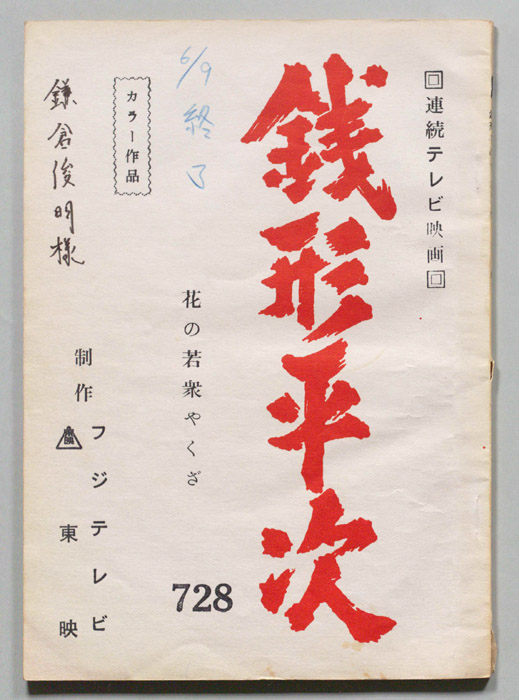 回連続テレビ映画回
銭形平次
花の若衆やくざ
728
6/9 終了
カラー作品
制作 フジテレビ
東映
鎌倉俊明様